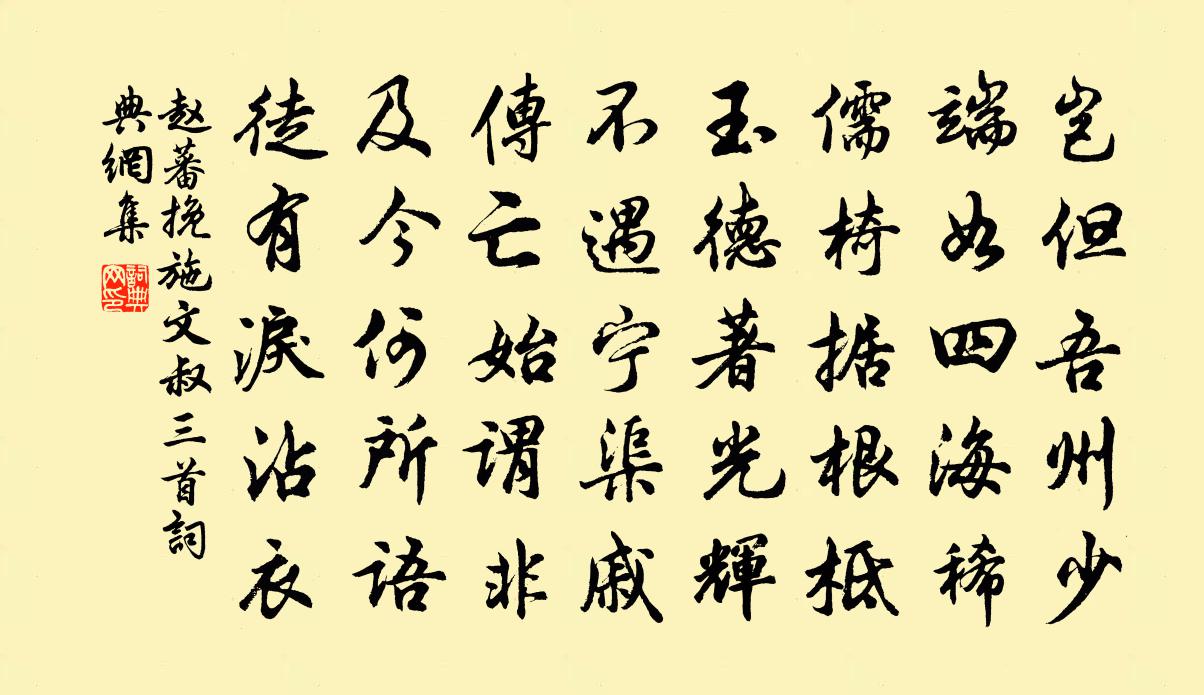 岂但吾州少
端如四海稀
儒椅据根柢
玉德著光輝
不遇宁渠戚
傳亡始谓非
及今何所语
徒有淚沾衣
赵蕃挽施文叔三首詞
典網集
詞典网印